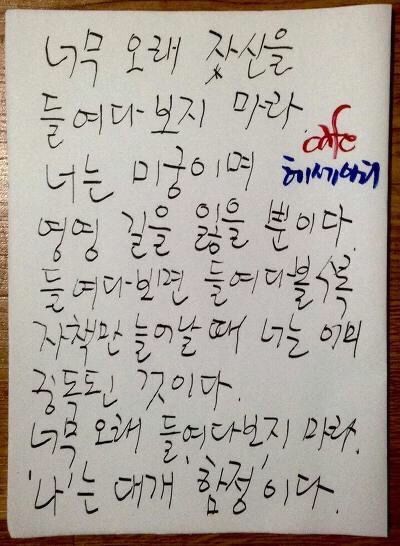 너무 오래 자신을
들여다보지 마라.
cafe
너는 미궁이며
영영 길을 잃을 뿐이다.
들여다보면 들여다볼수록
자책만 늘어날 때 너는 이미
중독된 것이다.
너무 오래 들여다보지 마라.
'나'는 대개 '함정'이다.